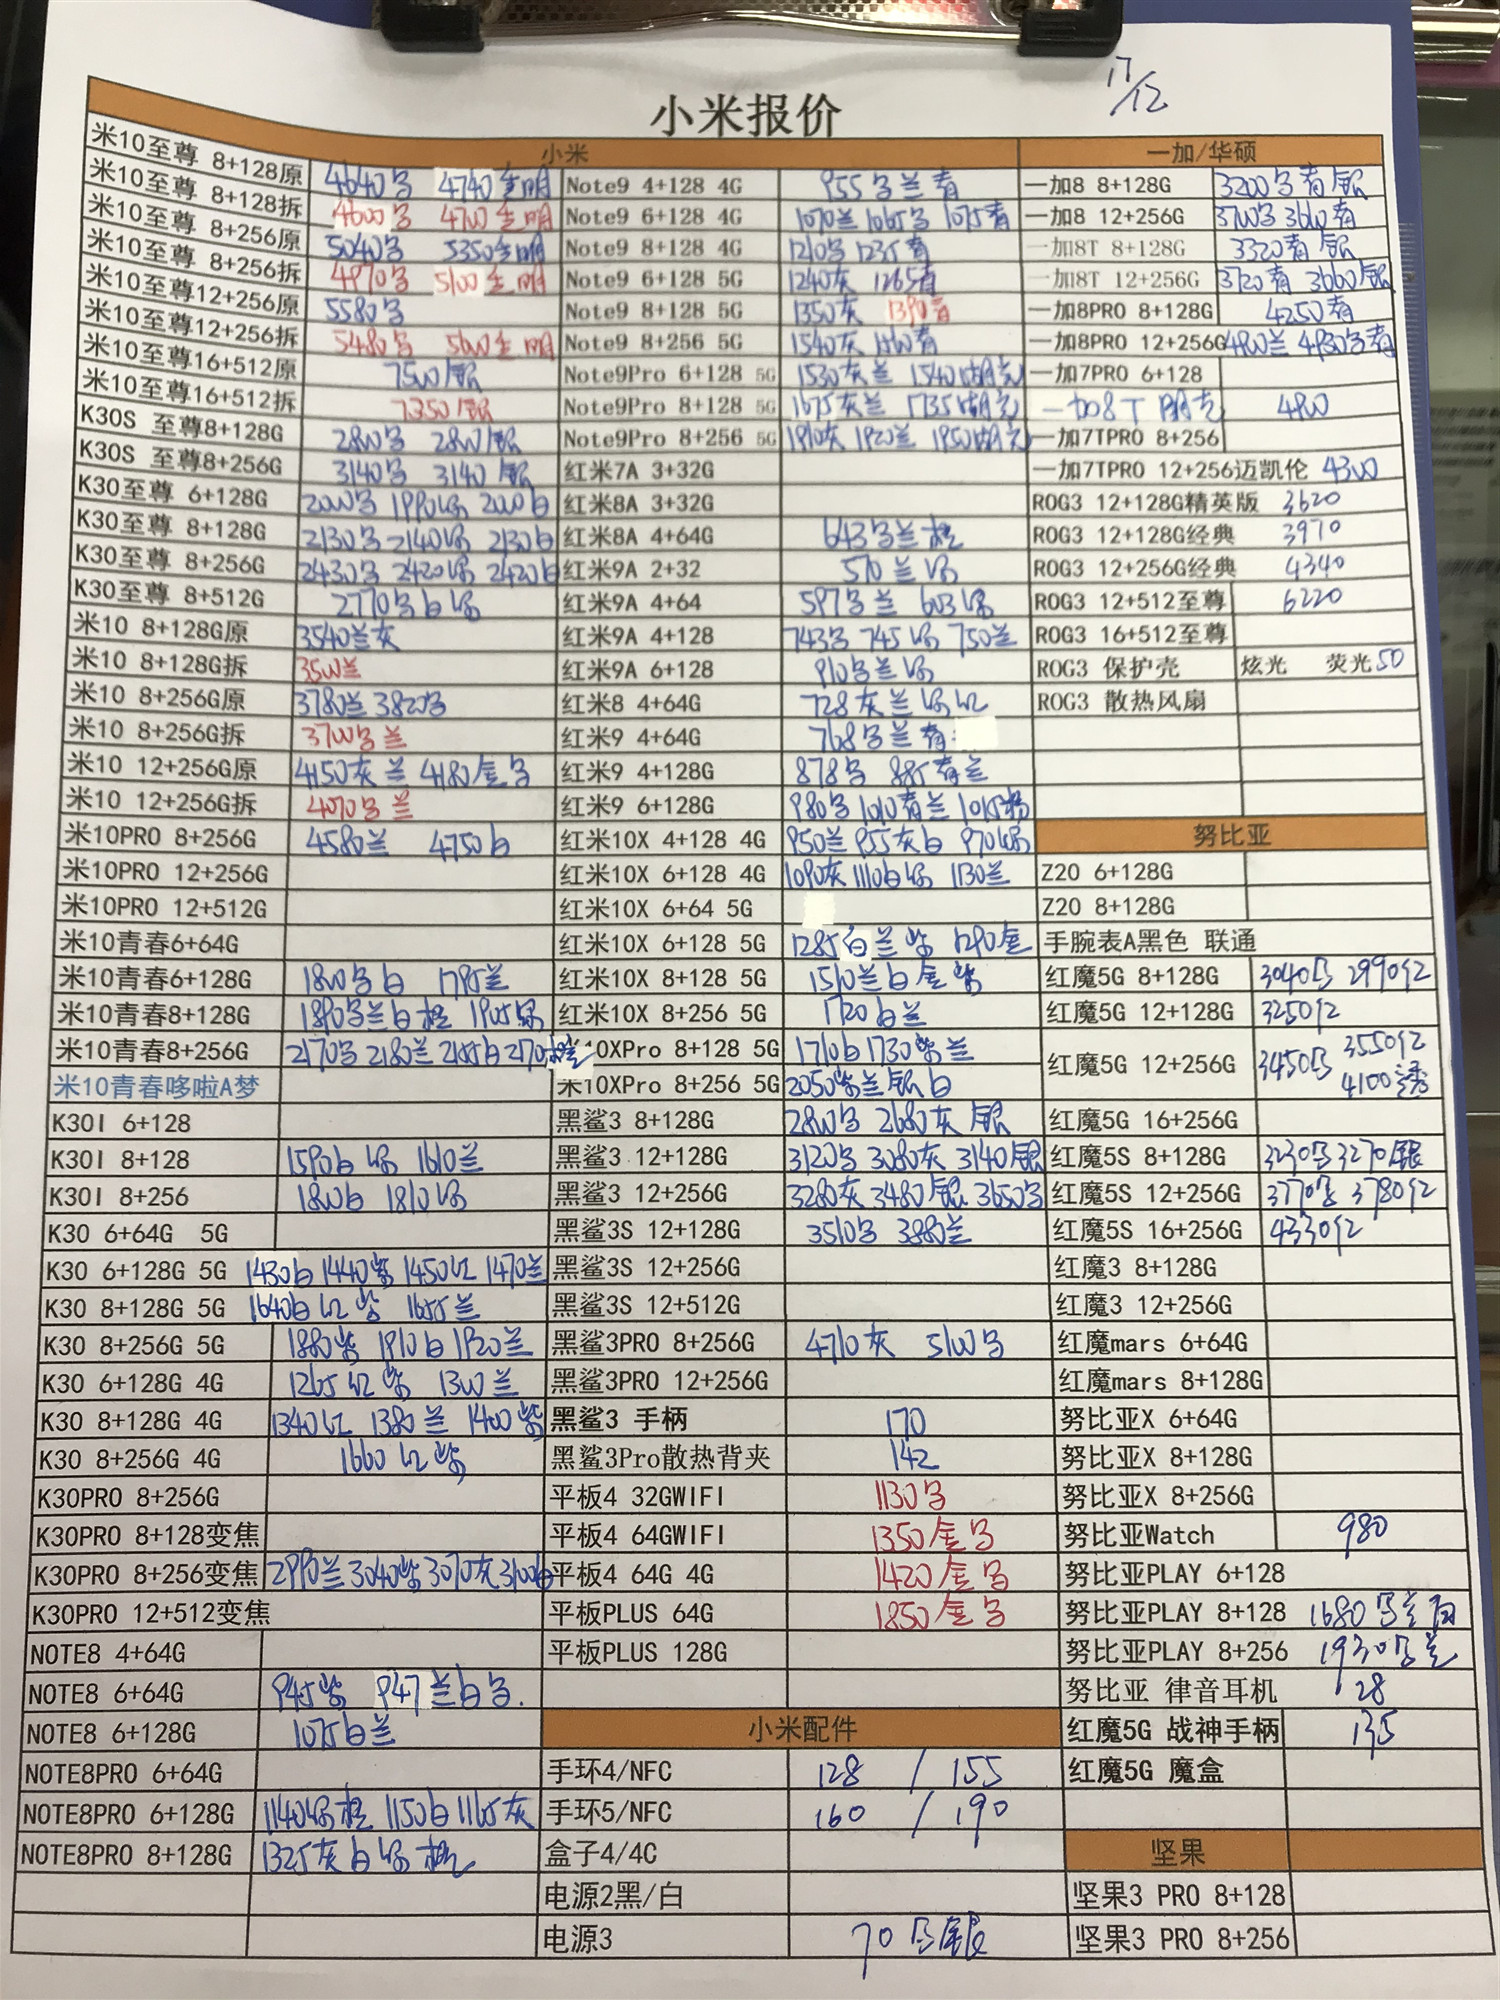 17/12
小米报价
小米
一加/华硕
米10至尊 8+128原 4640 4740
米10至尊 8+128拆 4600 4700
米10至尊 8+256原 5040 5350
米10至尊 8+256拆 4970 5100
米10至尊12+256原 5580
米10至尊12+256拆 5480 5600
米10至尊16+512原 7500 银
米10至尊16+512拆 7350 银
K30S 至尊8+128G 2800 2800银
K30S 至尊8+256G 3140 3140 银
K30至尊 6+128G 2000 1990绿 2000白
K30至尊 8+128G 2130 2140绿 2130白
K30至尊 8+256G 2430 2420绿 2420白
K30至尊 8+512G 2770 白绿
米10 8+128G原 3540兰灰
米10 8+128G拆 3500兰
米10 8+256G原 3780兰 3820
米10 8+256G拆 3700 兰
米10 12+256G原 4150灰兰 4180金
米10 12+256G拆 4070 兰
米10PRO 8+256G 4580兰 4750白
米10PRO 12+256G
米10PRO 12+512G
米10青春6+64G
米10青春6+128G 1800 白 1785兰
米10青春8+128G 1890 兰白橙 1905绿
米10青春8+256G 2170 2180兰 2165白 2170橙
米10青春哆啦A梦
K30I 6+128
K30I 8+128 1590白绿 1610兰
K30I 8+256 1800白 1810绿
K30 6+64G 5G
K30 6+128G 5G 1430白 1440紫 1450红 1470兰
K30 8+128G 5G 1640白红紫 1655兰
K30 8+256G 5G 1880紫 1910白 1920兰
K30 6+128G 4G 1265红紫 1300兰
K30 8+128G 4G 1340红 1380兰 1400紫
K30 8+256G 4G 1660红紫
K30PRO 8+256G
K30PRO 8+128变焦
K30PRO 8+256变焦 2990兰 3040紫 3070灰 3100白
K30PRO 12+512变焦
NOTE8 4+64G
NOTE8 6+64G 945紫 947兰白
NOTE8 6+128G 1075白兰
NOTE8PRO 6+64G
NOTE8PRO 6+128G 1140绿橙 1150白 1165灰
NOTE8PRO 8+128G 1325灰白绿橙
Note9 4+128 4G 955 兰青
Note9 6+128 4G 1070兰 1065 1075青
Note9 8+128 4G 1210 1235青
Note9 6+128 5G 1240灰 1265青
Note9 8+128 5G 1350灰 1390青
Note9 8+256 5G 1540灰 1560青
Note9Pro 6+128 5G 1530灰兰 1540湖光
Note9Pro 8+128 5G 1675灰兰 1735湖光
Note9Pro 8+256 5G 1910灰 1920兰 1950湖光
红米7A 3+32G
红米8A 3+32G
红米8A 4+64G 643 兰橙
红米9A 2+32 510兰绿
红米9A 4+64 597 兰 603绿
红米9A 4+128 743 745绿 750兰
红米9A 6+128 910 兰绿
红米8 4+64G 728灰兰绿红
红米9 4+64G 768 兰青
红米9 4+128G 878 885青兰
红米9 6+128G 980 1010青兰 1015粉
红米10X 4+128 4G 950兰 955灰白 970绿
红米10X 6+128 4G 1090灰 1110白绿 1130兰
红米10X 6+64 5G
红米10X 6+128 5G 1285白兰紫 1290金
红米10X 8+128 5G 1510兰白金紫
红米10X 8+256 5G 1720白兰
10XPro 8+128 5G 1710白 1730紫兰
米10XPro 8+256 5G 2050紫兰银白
黑鲨3 8+128G 2800 2680灰 银
黑鲨3 12+128G 3120 3080灰 3140银
黑鲨3 12+256G 3280灰 3480银 3650
黑鲨3S 12+128G 3510 3880兰
黑鲨3S 12+256G
黑鲨3S 12+512G
黑鲨3PRO 8+256G 4710灰 5100
黑鲨3PRO 12+256G
黑鲨3 手柄 170
黑鲨3Pro散热背夹 142
平板4 32GWIFI 1130
平板4 64GWIFI 1350金
平板4 64G 4G 1420金
平板PLUS 64G 1850金
平板PLUS 128G
小米配件
手环4/NFC 128 / 155
手环5/NFC 160 / 190
盒子4/4C
电源2黑/白
电源3 70 银
一加8 8+128G 3200 青银
一加8 12+256G 3700 3660青
一加8T 8+128G 3320青银
一加8T 12+256G 3720青 3660银
一加8PRO 8+128G 4250青
一加8PRO 12+256G 4900兰 4930 青
一加7PRO 6+128
一加8T 480
一加7TPRO 8+256
一加7TPRO 12+256迈凯伦 4300
ROG3 12+128G精英版 3620
ROG3 12+128G经典 3970
ROG3 12+256G经典 4340
ROG3 12+512至尊 6220
ROG3 16+512至尊
ROG3 保护壳 炫光 荧光50
ROG3 散热风扇
努比亚
Z20 6+128G
Z20 8+128G
手腕表A黑色 联通
红魔5G 8+128G 3040 2990红
红魔5G 12+128G 3250红
红魔5G 12+256G 3450 3550红 4100透
红魔5G 16+256G
红魔5S 8+128G 3230 3270银
红魔5S 12+256G 3770 3780红
红魔5S 16+256G 4330红
红魔3 8+128G
红魔3 12+256G
红魔mars 6+64G
红魔mars 8+128G
努比亚X 6+64G
努比亚X 8+128G
努比亚X 8+256G
努比亚Watch 980
努比亚PLAY 6+128
努比亚PLAY 8+128 1680 兰白
努比亚PLAY 8+256 1930 兰
努比亚 律音耳机 28
红魔5G 战神手柄 135
红魔5G 魔盒
坚果
坚果3 PRO 8+128
坚果3 PRO 8+256